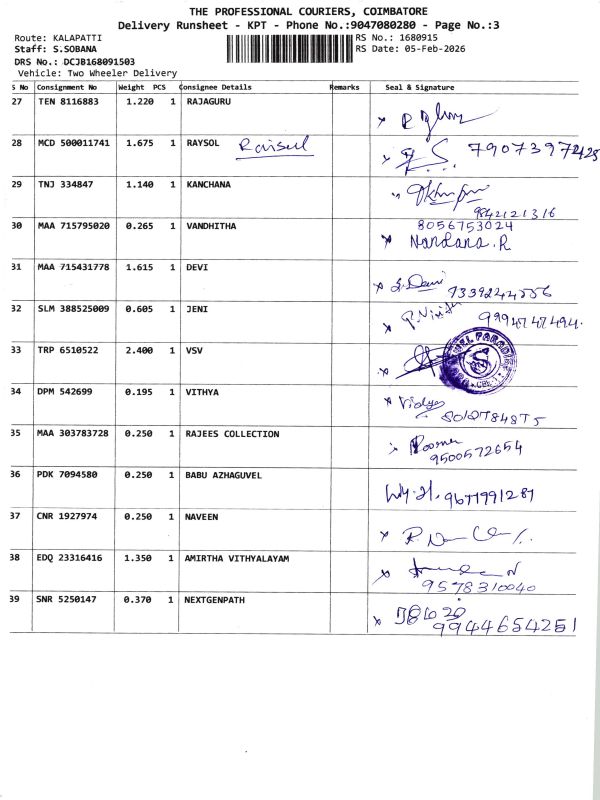 THE PROFESSIONAL COURIERS, COIMBATORE
Delivery Runsheet - KPT - Phone No.:9047080280 - Page No.:3
Route: KALAPATTI RS No.: 1680915
Staff: S.SOBANA RS Date: 05-Feb-2026
DRS No.: DCJB168091503
Vehicle: Two Wheeler Delivery
S No Consignment No Weight PCS Consignee Details Remarks Seal & Signature
27 TEN 8116883 1.220 1 RAJAGURU
28 MCD 500011741 1.675 1 RAYSOL Raisul 79073972425
29 TNJ 334847 1.140 1 KANCHANA
9842121316
30 MAA 715795020 0.265 1 VANDHITHA 8056753024
Nandana.R
31 MAA 715431778 1.615 1 DEVI
S.Devi 9339244556
32 SLM 388525009 0.605 1 JENI
9994747494.
33 TRP 6510522 2.400 1 VSV
34 DPM 542699 0.195 1 VITHYA
Vidya 8012784875
35 MAA 303783728 0.250 1 RAJEES COLLECTION
9500572654
36 PDK 7094580 0.250 1 BABU AZHAGUVEL
9677991287
37 CNR 1927974 0.250 1 NAVEEN
38 EDQ 23316416 1.350 1 AMIRTHA VITHYALAYAM
9578310040
39 SNR 5250147 0.370 1 NEXTGENPATH
9944654251